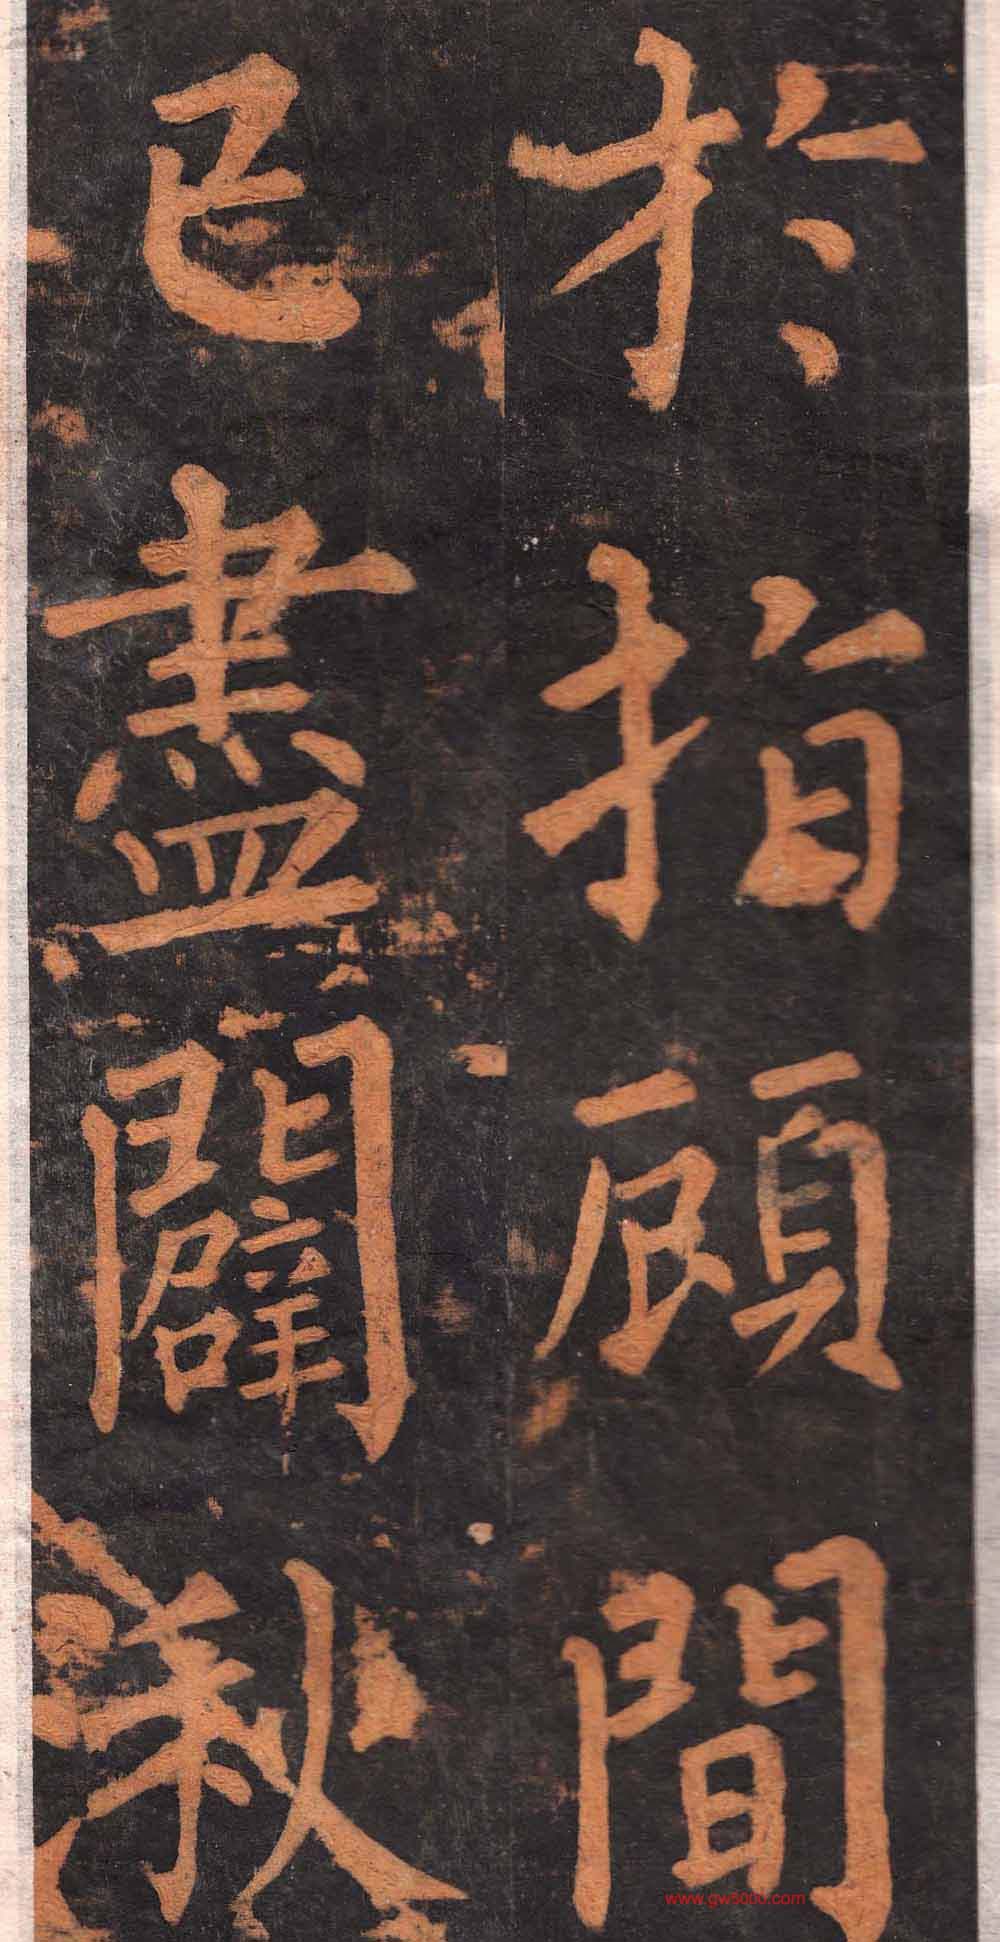 於指顧間
已盡闢
www.gw5000.com